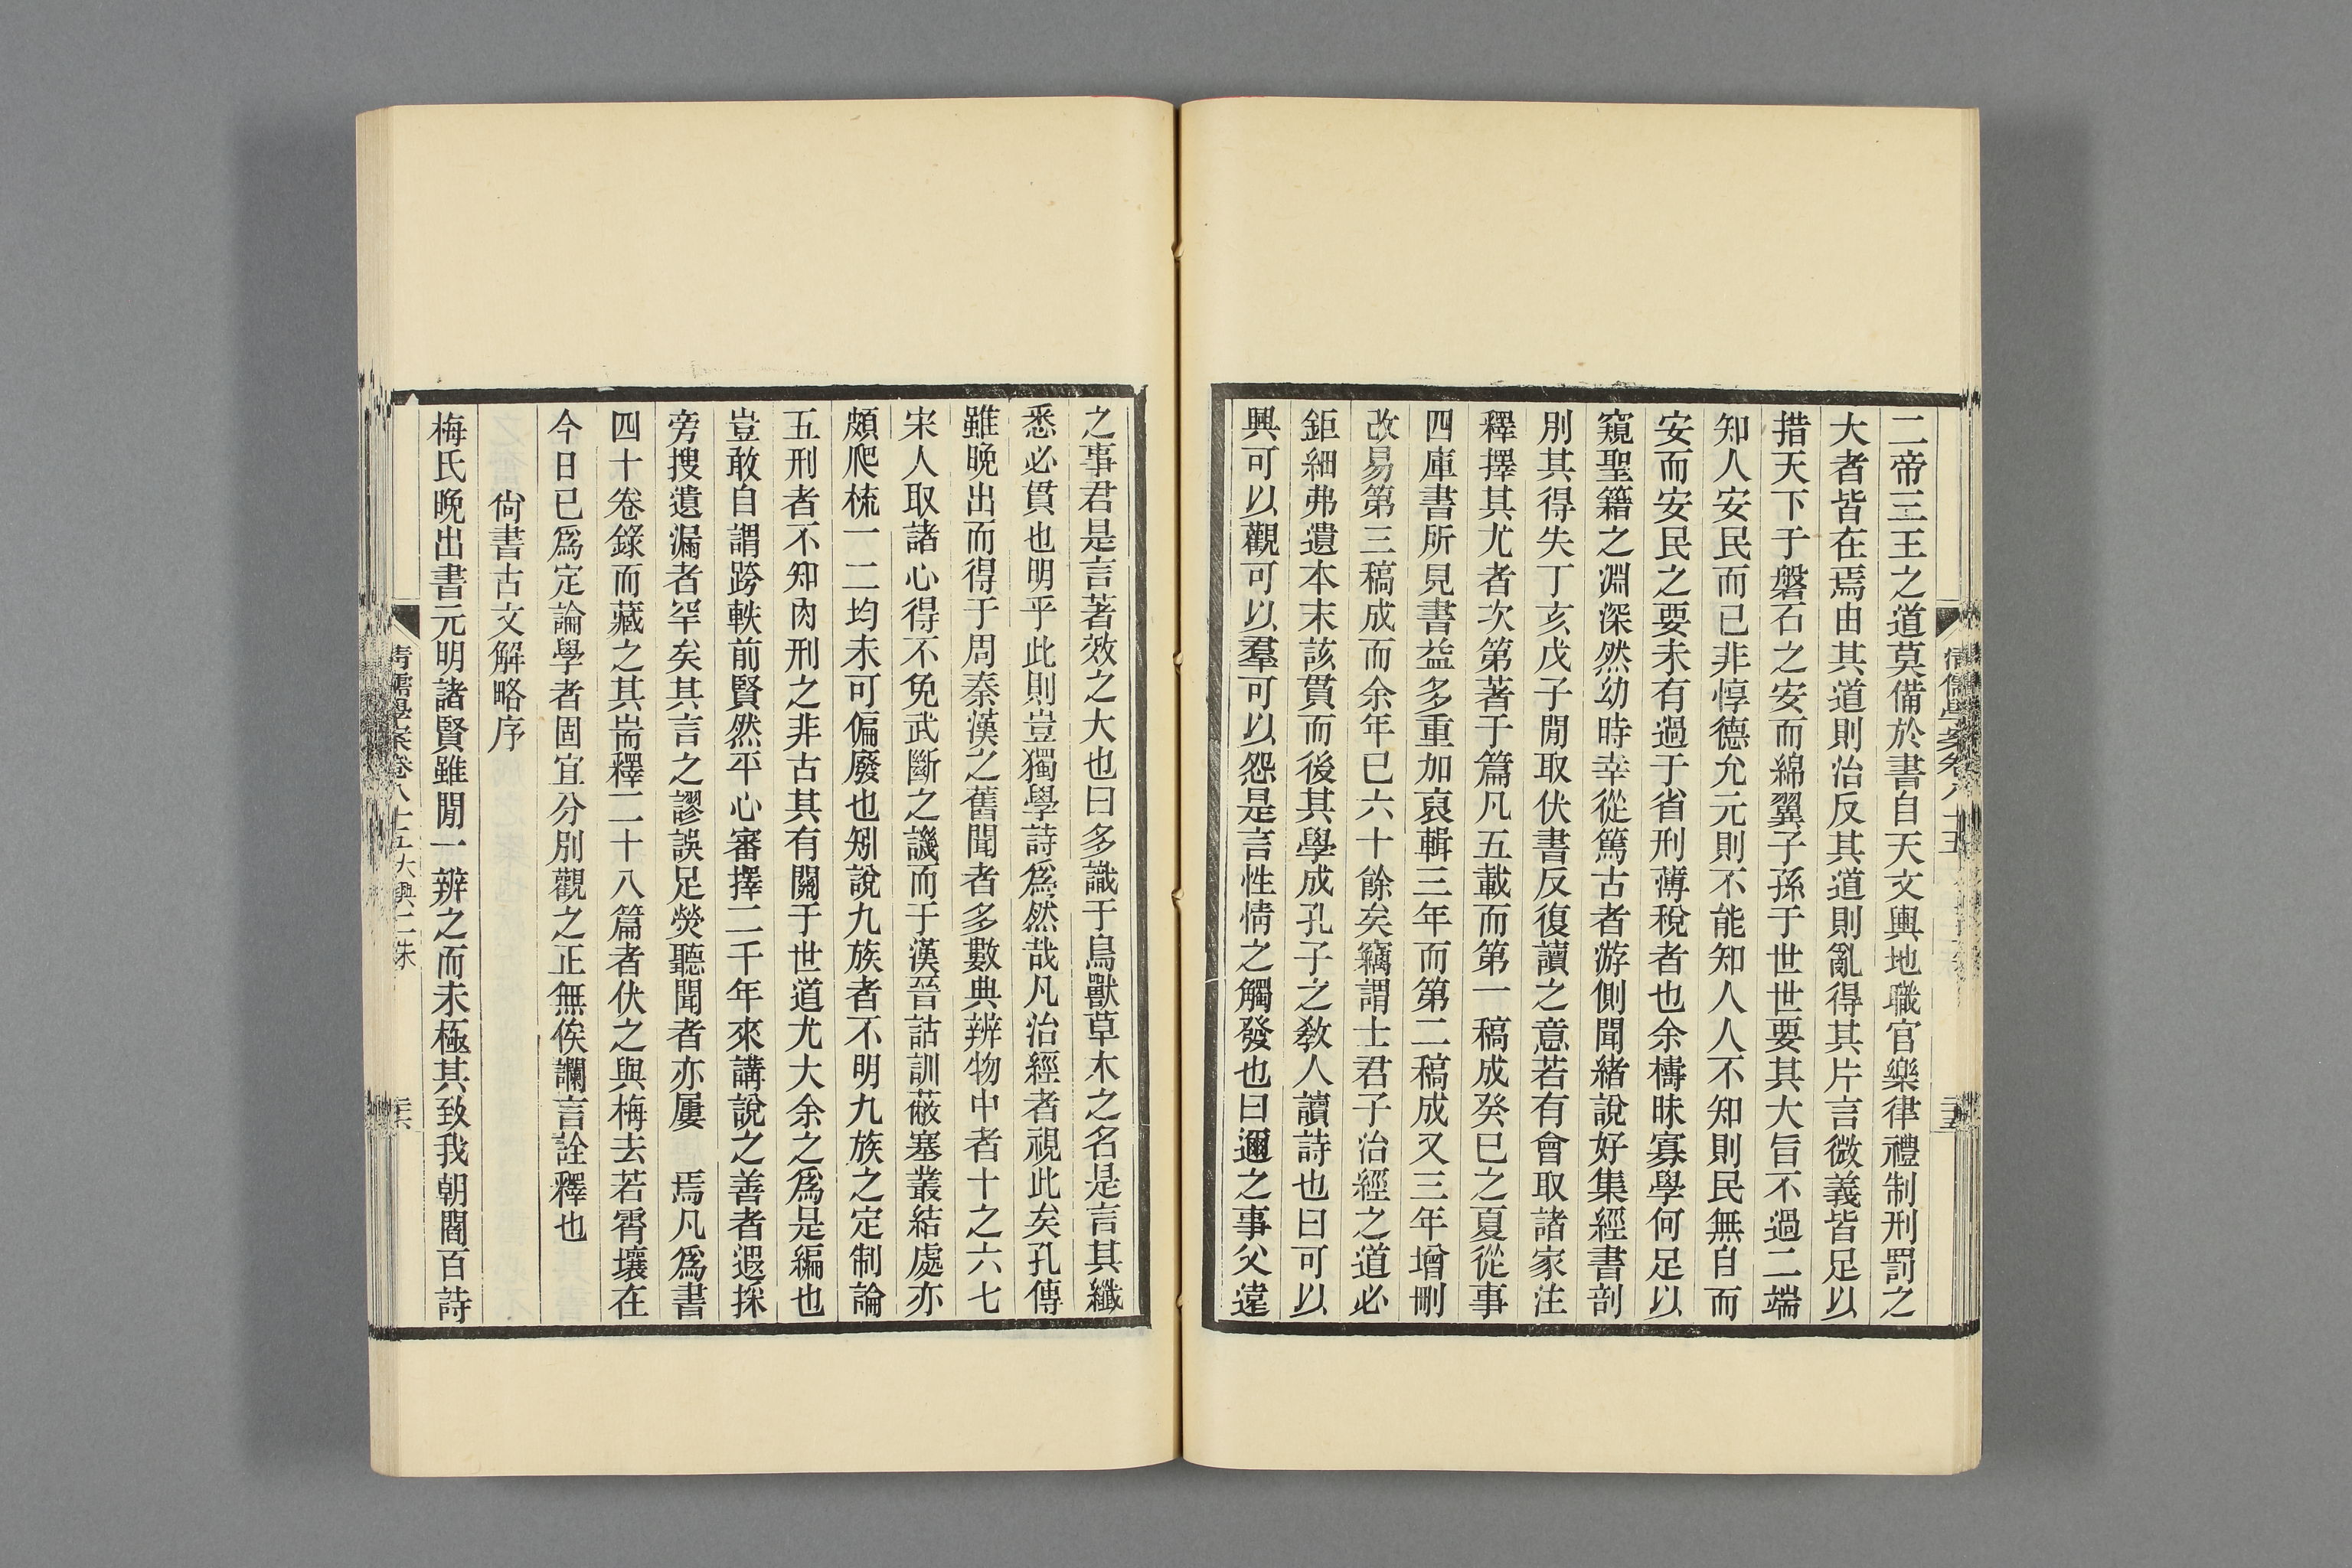 二帝三王之道莫備於書自天文輿地職官樂律禮制刑罰之
大者皆在焉由其道則治反其道則亂得其片言微義皆足以
措天下于磐石之安而綿翼子孫于世世要其大旨不過二端
知人安民而已非惇德允元則不能知人人不知則民無自而
安而安民之要未有過于省刑薄稅者也余檮昧寡學何足以
窺聖籍之淵深然幼時幸從篤古者游側聞緒說好集經書剖
別其得失丁亥戊子閒取伏書反復讀之意若有會取諸家注
釋擇其尤者次第著于篇凡五載而第一稿成癸巳之夏從事
四庫書所見書益多重加裒輯三年而第二稿成又三年增刪
改易第三稿成而余年已六十餘矣竊謂士君子治經之道必
鉅細弗遺本末該貫而後其學成孔子之敎人讀詩也曰可以
興可以觀可以羣可以怨是言性情之觸發也曰邇之事父遠
之事君是言著效之大也曰多識于鳥獸草木之名是言其纖
悉必貫也明乎此則豈獨學詩爲然哉凡治經者視此矣孔傳
雖晚出而得于周秦漢之舊聞者多數典辨物中者十之六七
宋人取諸心得不免武斷之譏而于漢晉詁訓蔽塞叢結處亦
頗爬梳一二均未可偏廢也矧說九族者不明九族之定制論
五刑者不知肉刑之非古其有關于世道尤大余之爲是編也
豈敢自謂跨軼前賢然平心審擇二千年來講說之善者遐採
旁搜遺漏者罕矣其言之謬誤足熒聽聞者亦屢　焉凡爲書
四十卷錄而藏之其耑釋二十八篇者伏之與梅去若霄壤在
今日已爲定論學者固宜分別觀之正無俟讕言詮釋也
尙書古文解略序
梅氏晚出書元明諸賢雖閒一辨之而未極其致我朝閻百詩
清儒學案卷八十五大興二朱
二六